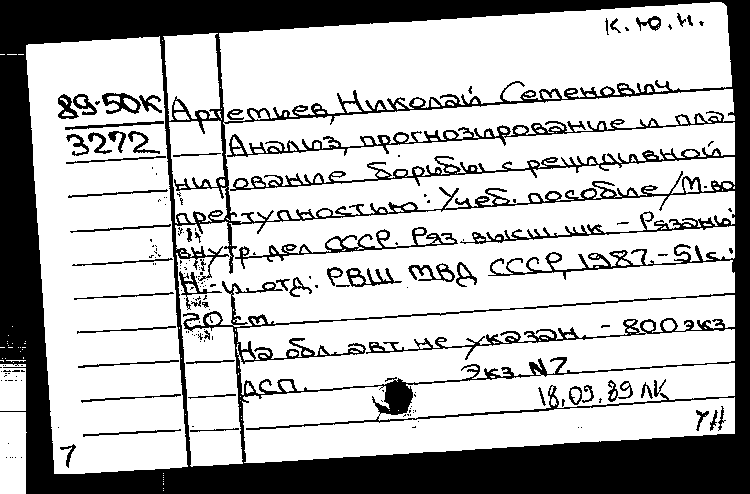 К.Ю.Н.
89-50К Артемьев, Николай Семенович.
3272 Анализ, прогнозирование и пла-
нирование борьбы с рецидивной
преступностью: Учеб. пособие / М-во
внутр. дел СССР. Ряз. высш. шк. - Рязань:
Н.-и. отд: РВШ МВД СССР, 1987. - 51с.;
20 см.
На обл. авт. не указан. - 800 экз.
Экз. N7.
ДСП.
18.09.89 ЛК
7Н
7